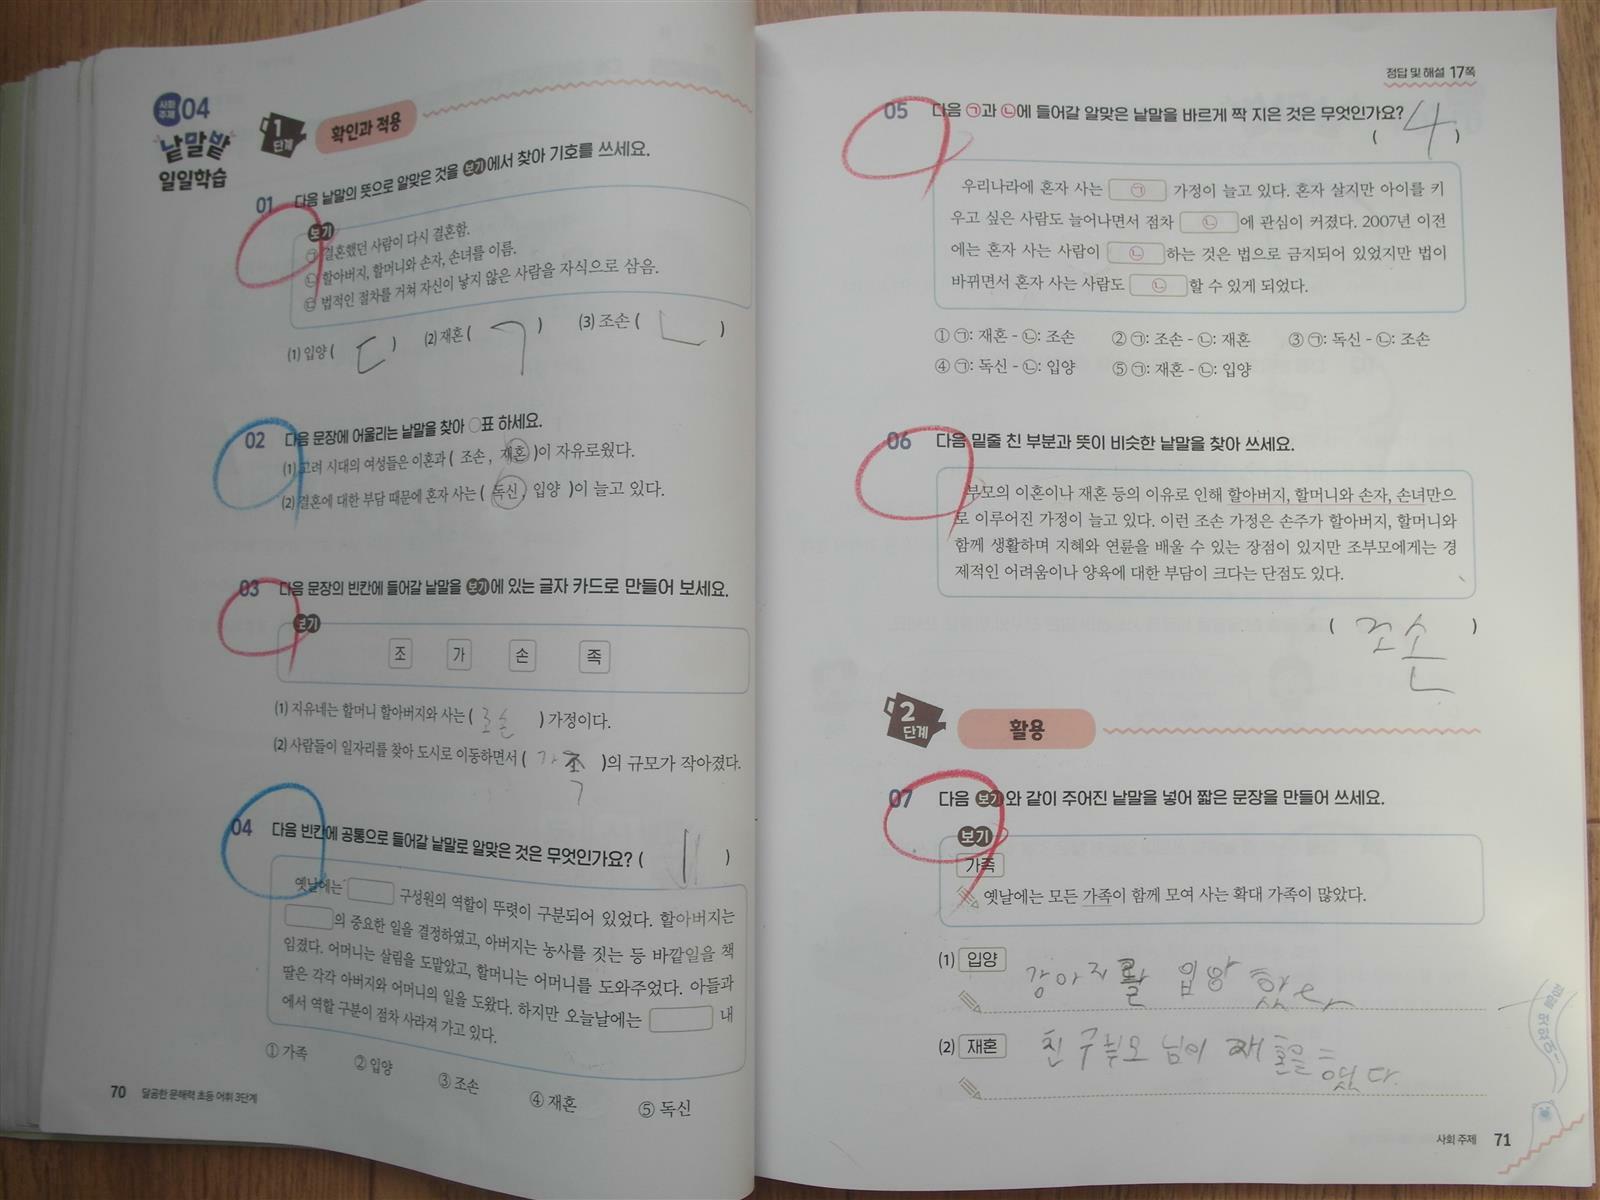 사회 주제 04
낱말밭
일일학습
1단계
확인과 적용
01 다음 낱말의 뜻으로 알맞은 것을 보기에서 찾아 기호를 쓰세요.
보기
㉠ 결혼했던 사람이 다시 결혼함.
㉡ 할아버지, 할머니와 손자, 손녀를 이름.
㉢ 법적인 절차를 거쳐 자신이 낳지 않은 사람을 자식으로 삼음.
(1) 입양 ( ㄷ ) (2) 재혼 ( ㄱ ) (3) 조손 ( ㄴ )
02 다음 문장에 어울리는 낱말을 찾아 ○표 하세요.
(1) 고려 시대의 여성들은 이혼과 ( 조손 , 재혼 )이 자유로웠다.
(2) 결혼에 대한 부담 때문에 혼자 사는 ( 독신 , 입양 )이 늘고 있다.
03 다음 문장의 빈칸에 들어갈 낱말을 보기에 있는 글자 카드로 만들어 보세요.
보기
조 가 손 족
(1) 지유네는 할머니 할아버지와 사는 ( 조손 ) 가정이다.
(2) 사람들이 일자리를 찾아 도시로 이동하면서 ( 가족 )의 규모가 작아졌다.
04 다음 빈칸에 공통으로 들어갈 낱말로 알맞은 것은 무엇인가요? ( 1 )
옛날에는 구성원의 역할이 뚜렷이 구분되어 있었다. 할아버지는
의 중요한 일을 결정하였고, 아버지는 농사를 짓는 등 바깥일을 책
임졌다. 어머니는 살림을 도맡았고, 할머니는 어머니를 도와주었다. 아들과
딸은 각각 아버지와 어머니의 일을 도왔다. 하지만 오늘날에는 내
에서 역할 구분이 점차 사라져 가고 있다.
① 가족 ② 입양 ③ 조손 ④ 재혼 ⑤ 독신
70 달곰한 문해력 초등 어휘 3단계
정답 및 해설 17쪽
05 다음 ㉠과 ㉡에 들어갈 알맞은 낱말을 바르게 짝 지은 것은 무엇인가요?
( 4 )
우리나라에 혼자 사는 ㉠ 가정이 늘고 있다. 혼자 살지만 아이를 키
우고 싶은 사람도 늘어나면서 점차 ㉡ 에 관심이 커졌다. 2007년 이전
에는 혼자 사는 사람이 ㉡ 하는 것은 법으로 금지되어 있었지만 법이
바뀌면서 혼자 사는 사람도 ㉡ 할 수 있게 되었다.
① ㉠: 재혼 - ㉡: 조손 ② ㉠: 조손 - ㉡: 재혼 ③ ㉠: 독신 - ㉡: 조손
④ ㉠: 독신 - ㉡: 입양 ⑤ ㉠: 재혼 - ㉡: 입양
06 다음 밑줄 친 부분과 뜻이 비슷한 낱말을 찾아 쓰세요.
부모의 이혼이나 재혼 등의 이유로 인해 할아버지, 할머니와 손자, 손녀만으
로 이루어진 가정이 늘고 있다. 이런 조손 가정은 손주가 할아버지, 할머니와
함께 생활하며 지혜와 연륜을 배울 수 있는 장점이 있지만 조부모에게는 경
제적인 어려움이나 양육에 대한 부담이 크다는 단점도 있다.
( 조손 )
2단계
활용
07 다음 보기와 같이 주어진 낱말을 넣어 짧은 문장을 만들어 쓰세요.
보기
가족
옛날에는 모든 가족이 함께 모여 사는 확대 가족이 많았다.
(1) 입양 강아지를 입양 했다
(2) 재혼 친구부모 님이 재혼을 했다.
사회 주제 71